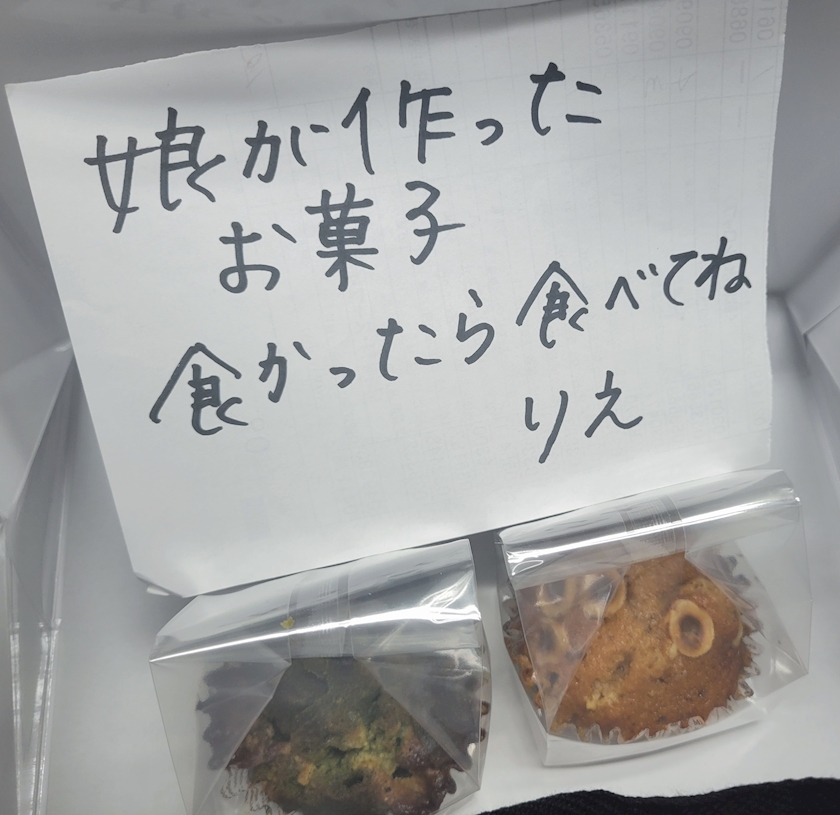 娘が作った
お菓子
食かったら食べてね
りえ